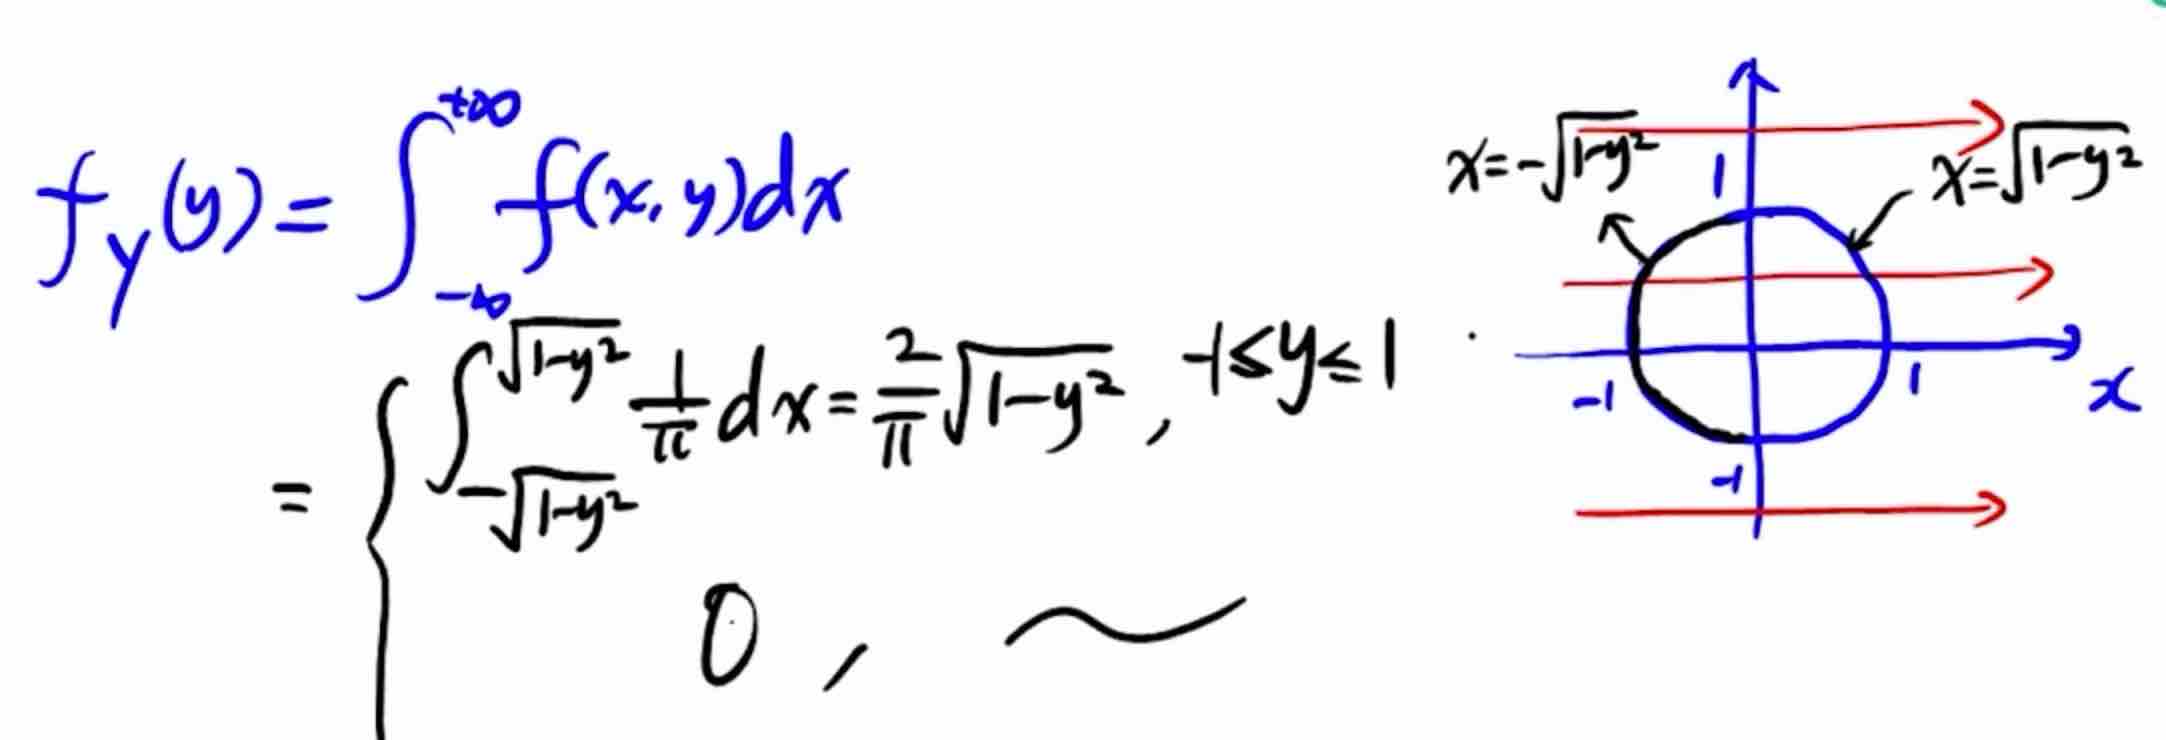 f_Y(y) = ∫_{-∞}^{+∞} f(x, y)dx
= { ∫_{-√(1-y²)}^{√(1-y²)} 1/π dx = 2/π √(1-y²) , -1≤y≤1
0 , ~
x=-√(1-y²)
x=√(1-y²)
1
-1
1
x
-1